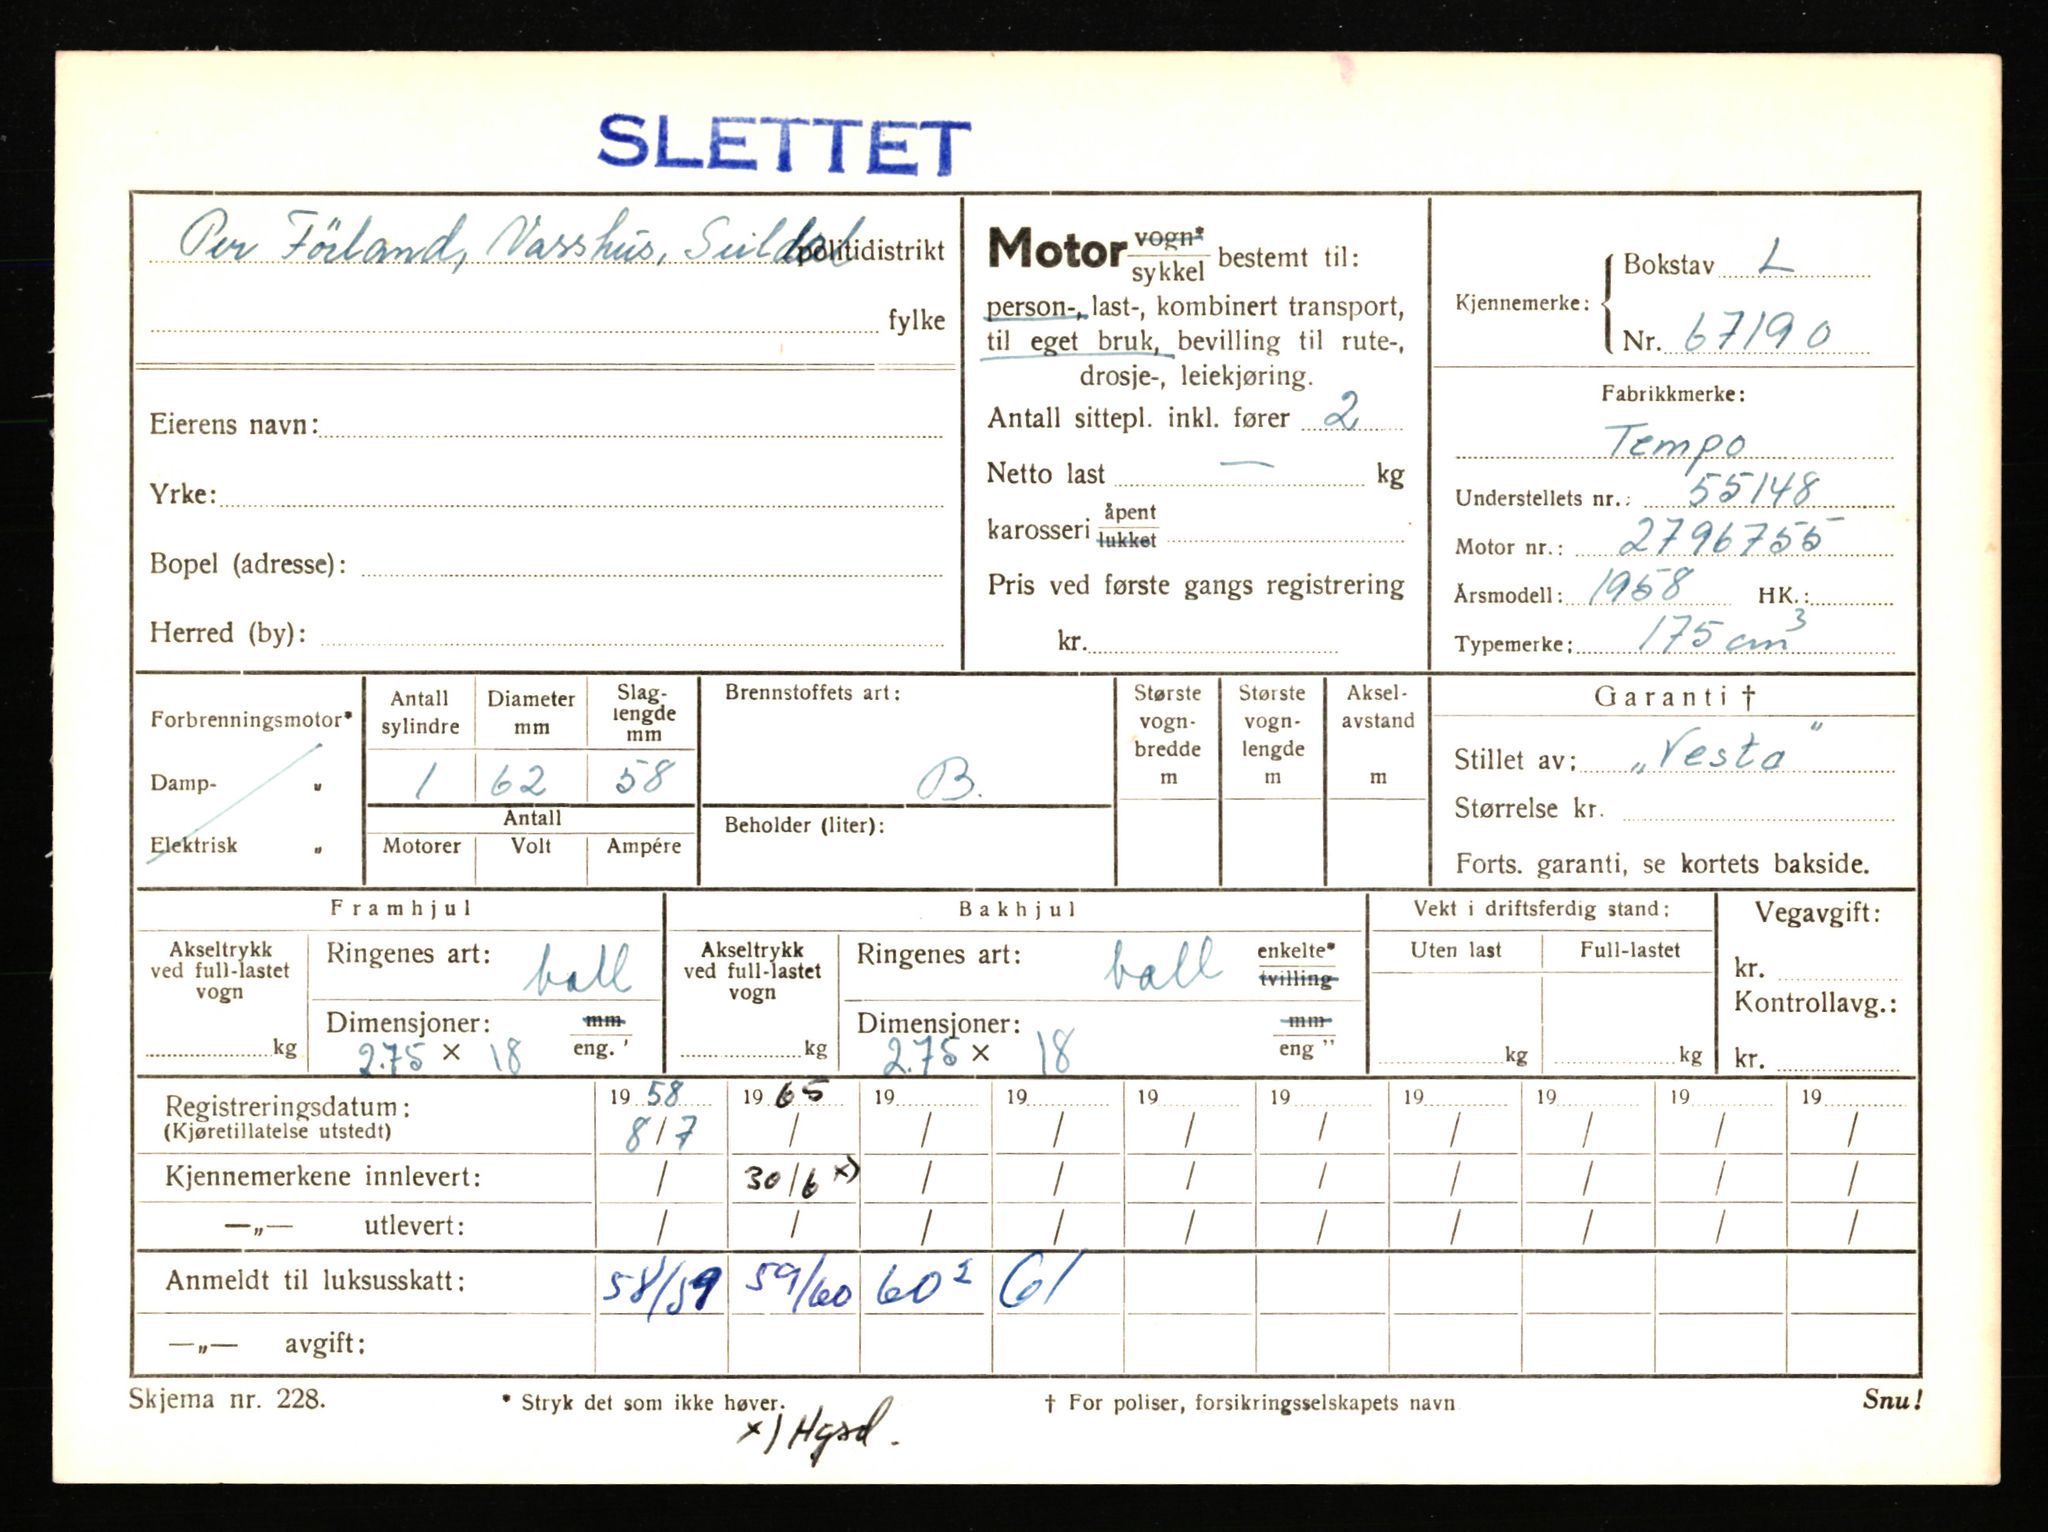 SLETTET
Per Förland, Vasshus, Suldal politidistrikt
fylke
Eierens navn:
Yrke:
Bopel (adresse):
Herred (by):
Motor vogn*/sykkel bestemt til:
person-, last-, kombinert transport,
til eget bruk, bevilling til rute-,
drosje-, leiekjøring.
Antall sittepl. inkl. fører 2
Netto last — kg
karosseri åpent/lukket
Pris ved første gangs registrering
kr.
Kjennemerke: Bokstav L
Nr. 67190
Fabrikkmerke:
Tempo
Understellets nr.: 55148
Motor nr.: 2796755
Årsmodell: 1958 HK.:
Typemerke: 175 cm³
Forbrenningsmotor*
Damp- „
Elektrisk „
Antall sylindre
Diameter mm
Slag-lengde mm
1 62 58
Antall
Motorer Volt Ampére
Brennstoffets art:
B.
Beholder (liter):
Største vogn-bredde m
Største vogn-lengde m
Aksel-avstand m
Garanti †
Stillet av: „Vesta"
Størrelse kr.
Forts. garanti, se kortets bakside.
Framhjul
Akseltrykk ved full-lastet vogn
kg
Ringenes art: ball
Dimensjoner: mm/eng. '
2.75 × 18
Bakhjul
Akseltrykk ved full-lastet vogn
kg
Ringenes art: ball enkelte*/tvilling
Dimensjoner: mm/eng "
2.75 × 18
Vekt i driftsferdig stand:
Uten last Full-lastet
kg kg
Vegavgift:
kr.
Kontrollavg.:
kr.
Registreringsdatum: 19 58 19 65 19 19 19 19 19 19 19 19
(Kjøretillatelse utstedt) 8/7 / / / / / / / / /
Kjennemerkene innlevert: / 30/6 x) / / / / / / / /
—„— utlevert: / / / / / / / / / /
Anmeldt til luksusskatt: 58/59 59/60 60² 61
—„— avgift:
Skjema nr. 228. * Stryk det som ikke høver. † For poliser, forsikringsselskapets navn Snu!
x) Hgsd.